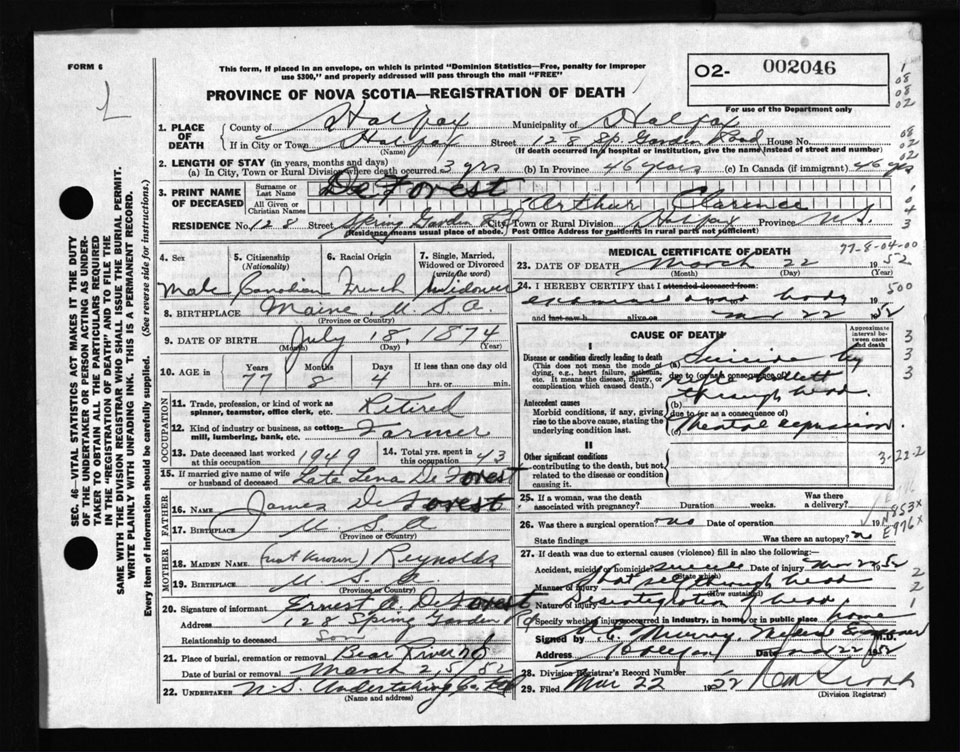 FORM 6
This form, if placed in an envelope, on which is printed "Dominion Statistics—Free, penalty for improper
use $300," and properly addressed will pass through the mail "FREE"
O2- 002046
PROVINCE OF NOVA SCOTIA—REGISTRATION OF DEATH
For use of the Department only
1 08 08 02
08 02 02 0 0 4 3
SEC. 46—VITAL STATISTICS ACT MAKES IT THE DUTY
OF THE UNDERTAKER OR PERSON ACTING AS UNDER-
TAKER TO OBTAIN ALL THE PARTICULARS REQUIRED
IN THE "REGISTRATION OF DEATH" AND TO FILE THE
SAME WITH THE DIVISION REGISTRAR WHO SHALL ISSUE THE BURIAL PERMIT.
WRITE PLAINLY WITH UNFADING INK. THIS IS A PERMANENT RECORD.
Every item of information should be carefully supplied. (See reverse side for instructions.)
1. PLACE OF DEATH County of Halifax Municipality of Halifax
If in City or Town Halifax (Name) Street 128 Sp. Garden Road House No.
(If death occurred in hospital or institution, give the name instead of street and number)
2. LENGTH OF STAY (in years, months and days)
(a) In City, Town or Rural Division where death occurred 3 yrs (b) In Province 46 years (c) In Canada (if immigrant) 46 yrs
3. PRINT NAME OF DECEASED Surname or Last Name De Forest
All Given or Christian Names Arthur Clarence
RESIDENCE No. 128 Street Spring Garden Rd City, Town or Rural Division Halifax Province N.S.
(Residence means usual place of abode. Post Office Address for residents in rural parts not sufficient)
4. Sex Male
5. Citizenship (Nationality) Canadian
6. Racial Origin French
7. Single, Married, Widowed or Divorced (write the word) Widower
8. BIRTHPLACE Maine, U.S.A.
(Province or Country)
9. DATE OF BIRTH July 18, 1874
(Month) (Day) (Year)
10. AGE in Years 77 Months 8 Days 4 If less than one day old hrs. or min.
OCCUPATION
11. Trade, profession, or kind of work as spinner, teamster, office clerk, etc. Retired
12. Kind of industry or business, as cotton-mill, lumbering, bank, etc. Farmer
13. Date deceased last worked at this occupation 1949 14. Total yrs. spent in this occupation 43
15. If married give name of wife or husband of deceased Late Lena De Forest
FATHER
16. Name James De Forest
17. Birthplace U.S.A
(Province or Country)
MOTHER
18. MAIDEN NAME (not known) Reynolds
19. BIRTHPLACE U.S.A.
(Province or Country)
20. Signature of informant Ernest A. De Forest
Address 128 Spring Garden Rd
Relationship to deceased Son
21. Place of burial, cremation or removal Bear River NS
Date of burial or removal March 25/52
22. UNDERTAKER N.S. Undertaking Co.
(Name and address)
MEDICAL CERTIFICATE OF DEATH
77-8-04-00
23. DATE OF DEATH March 22 1952
(Month) (Day) (Year)
24. I HEREBY CERTIFY that I attended deceased from: 500
examined dead body
and last saw h alive on Mar 22 1952
CAUSE OF DEATH
Approximate interval between onset and death
I
Disease or condition directly leading to death
(This does not mean the mode of dying, e.g., heart failure, asthenia, etc. It means the disease, injury, or complication which caused death.)
(a) Suicide by
due to (or as a consequence of) bullett
Antecedent causes
Morbid conditions, if any, giving rise to the above cause, stating the underlying condition last.
(b) through head.
due to (or as a consequence of)
(c) Mental depression
II
Other significant conditions
contributing to the death, but not related to the disease or condition causing it.
3 3 3
3-22-2
25. If a woman, was the death associated with pregnancy? Duration weeks. Was there a delivery?
26. Was there a surgical operation? no Date of operation 19
State findings Was there an autopsy? no
N853X
E976X
27. If death was due to external causes (violence) fill in also the following:—
Accident, suicide or homicide? suicide Date of injury Mar 22 1952
(State which)
Manner of injury Shot self through head
(How sustained)
Nature of injury Disintegration of head.
Specify whether injury occurred in industry, in home or in public place home
2 2 1
Signed by Murray, Medical Examiner M.D.
Address Halifax Date Mar 22 1952
28. Division Registrar's Record Number
29. Filed Mar 22 1952
(Division Registrar)